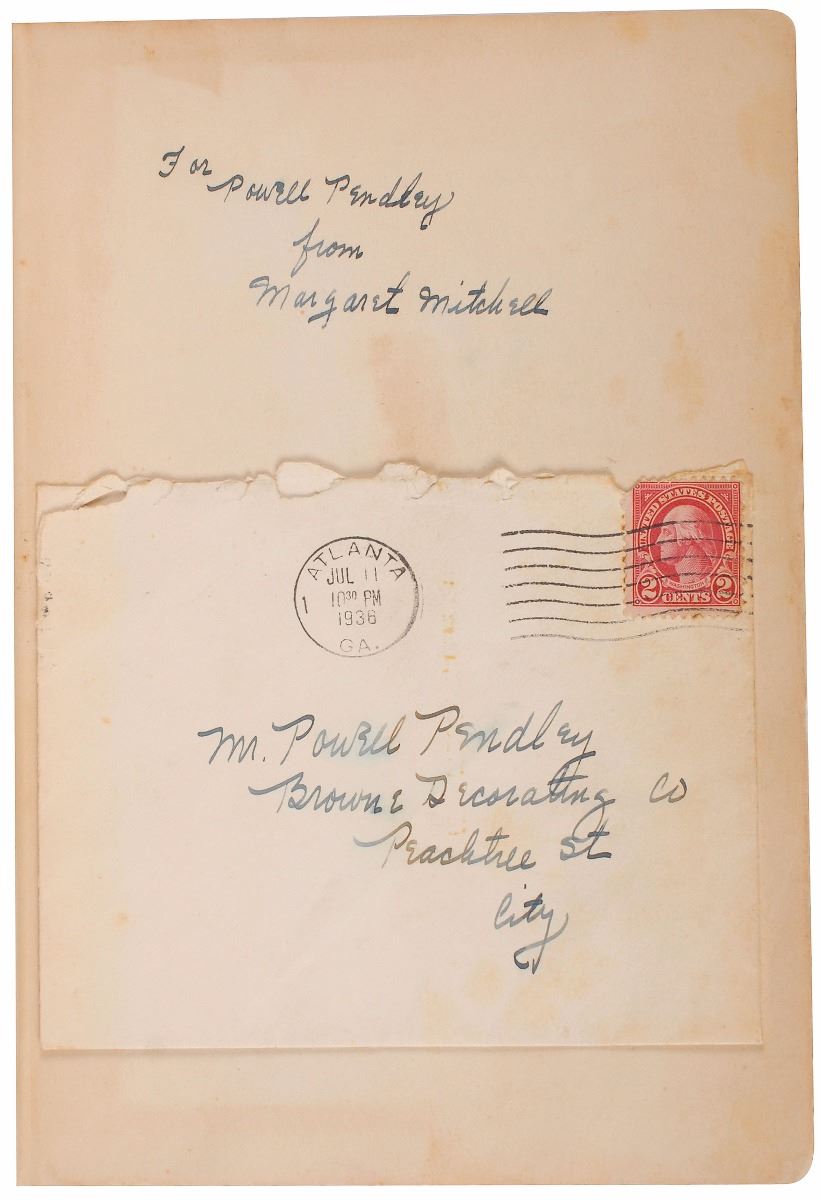 For
Powell Pendley
from
Margaret Mitchell
UNITED STATES POSTAGE
WASHINGTON
2 CENTS 2
ATLANTA
JUL 11
10 30 PM
1
1936
GA.
Mr. Powell Pendley
Browne Decorating Co
Peachtree St
City